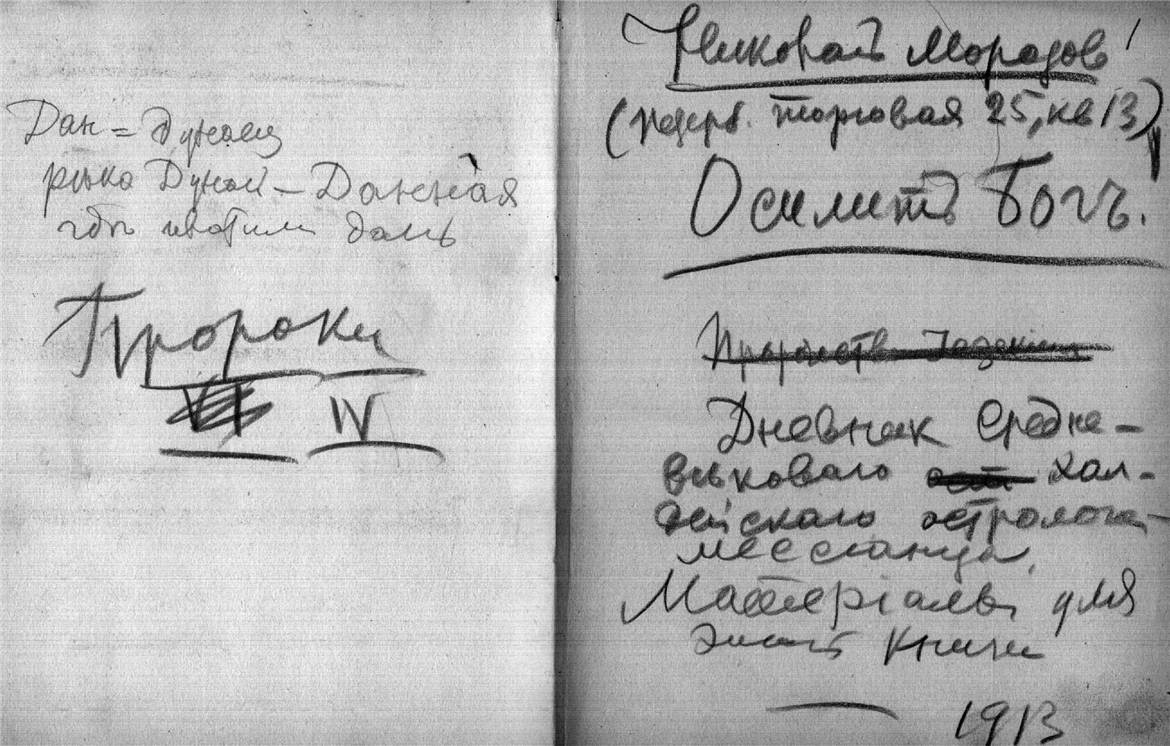 Дан = Дунаец
рѣка Дунай — Данная
гдѣ платили дань
Пророки
VI IV
Николай Морозовъ
(Петерб. Торговая 25, кв 13)
Осилитъ Богъ.
Дневник Средне-
вѣковаго Хал-
дейскаго астролога-
мессіанца.
Матеріалы для
этой книги
1913